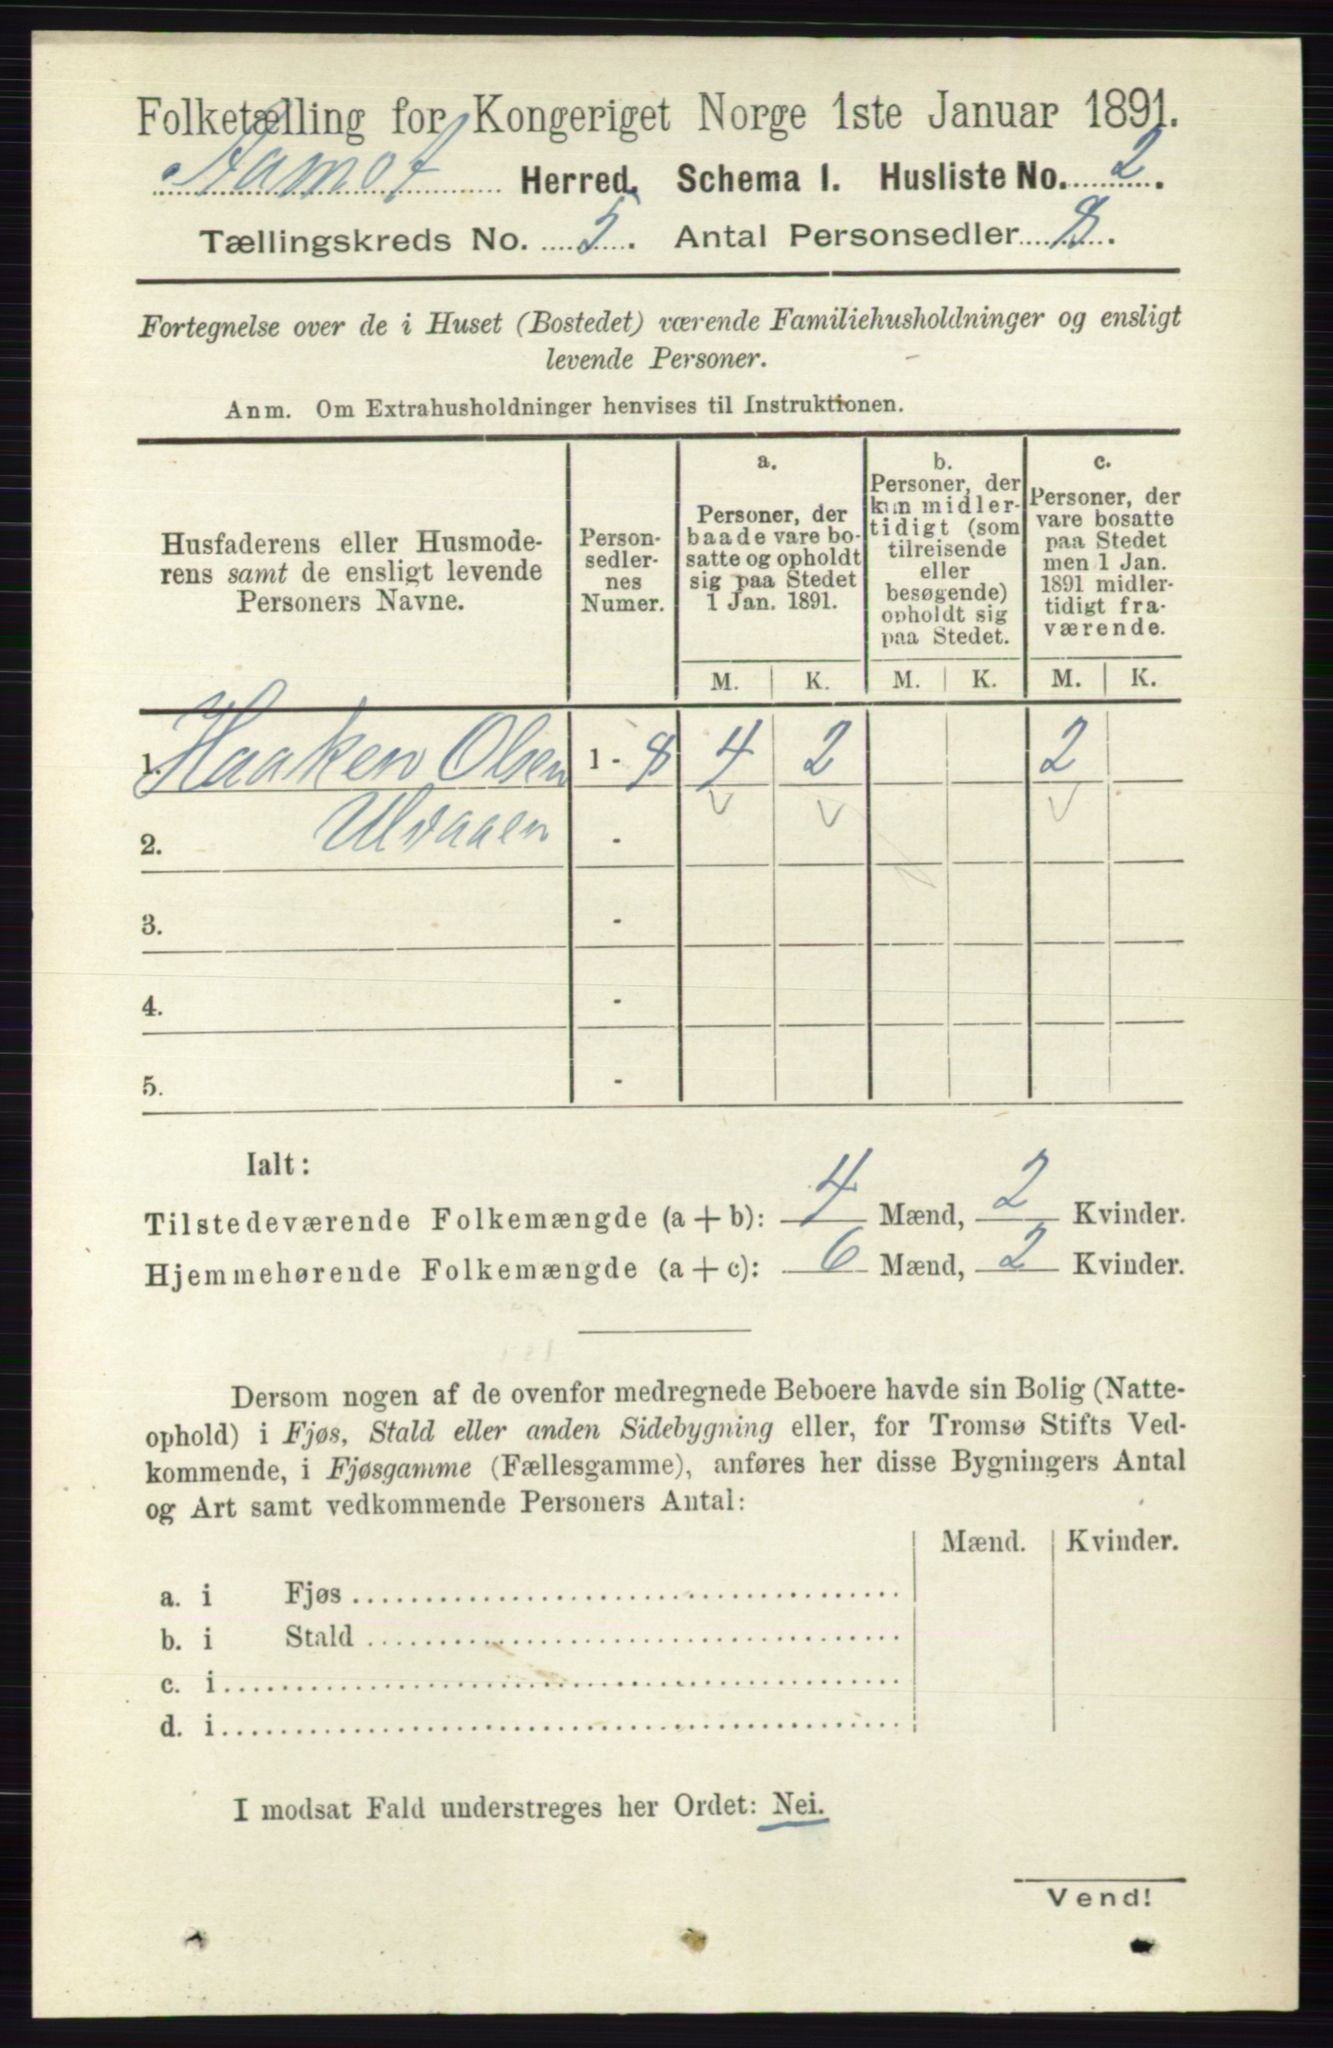 Folketælling for Kongeriget Norge 1ste Januar 1891.
Aamot Herred. Schema 1. Husliste No. 2.
Tællingskreds No. 5. Antal Personsedler 8.
Fortegnelse over de i Huset (Bostedet) værende Familiehusholdninger og ensligt
levende Personer.
Anm. Om Extrahusholdninger henvises til Instruktionen.
Husfaderens eller Husmode-
rens samt de ensligt levende
Personers Navne.
Person-
sedler-
nes
Numer.
a.
Personer, der
baade vare bo-
satte og opholdt
sig paa Stedet
1 Jan. 1891.
b.
Personer, der
kun midler-
tidigt (som
tilreisende
eller
besøgende)
opholdt sig
paa Stedet.
c.
Personer, der
vare bosatte
paa Stedet
men 1 Jan.
1891 midler-
tidigt fra-
værende.
M. K. M. K. M. K.
1. Haaken Olsen 1 - 8 4 2 2
2. Ulvaaen -
3. -
4. -
5. -
Ialt:
Tilstedeværende Folkemængde (a + b): 4 Mænd, 2 Kvinder.
Hjemmehørende Folkemængde (a + c): 6 Mænd, 2 Kvinder.
Dersom nogen af de ovenfor medregnede Beboere havde sin Bolig (Natte-
ophold) i Fjøs, Stald eller anden Sidebygning eller, for Tromsø Stifts Ved-
kommende, i Fjøsgamme (Fællesgamme), anføres her disse Bygningers Antal
og Art samt vedkommende Personers Antal:
Mænd. Kvinder.
a. i Fjøs
b. i Stald
c. i
d. i
I modsat Fald understreges her Ordet: Nei.
Vend!